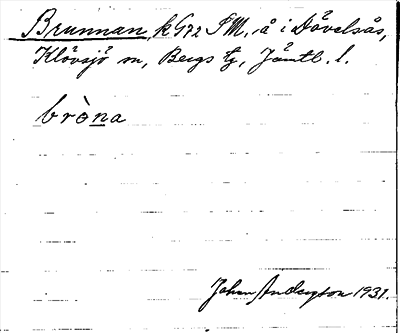 Brunnan, k. G72 SM, å i Dövelsås,
Klövsjö sn, Bergs tg, Jämtl. l.
bròna
Johan Anderzson 1931.